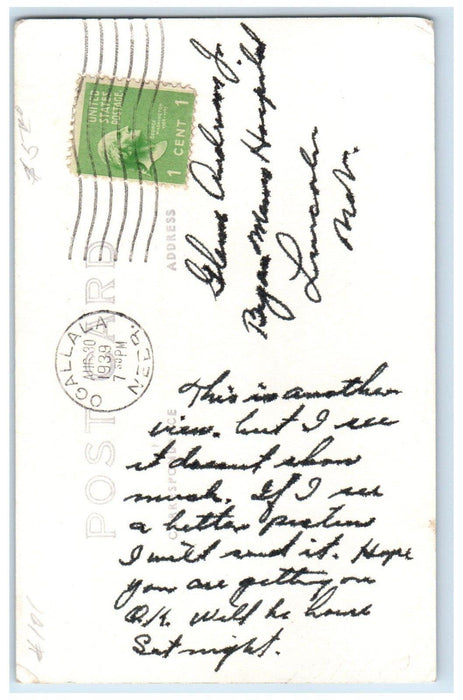 UNITED
STATES
POSTAGE
1 CENT 1
OGALLALA
AUG 30
1939
7 PM
NEBR.
POST CARD
ADDRESS
CORRESPONDENCE
Glenn Andrews Jr
Bryan Memo Hospital
Lincoln
Neb.
This is another
view, but I see
it doesnt show
much. If I see
a better picture
I will send it. Hope
you are getting on
O.K. Will be home
Sat night.
$5.00